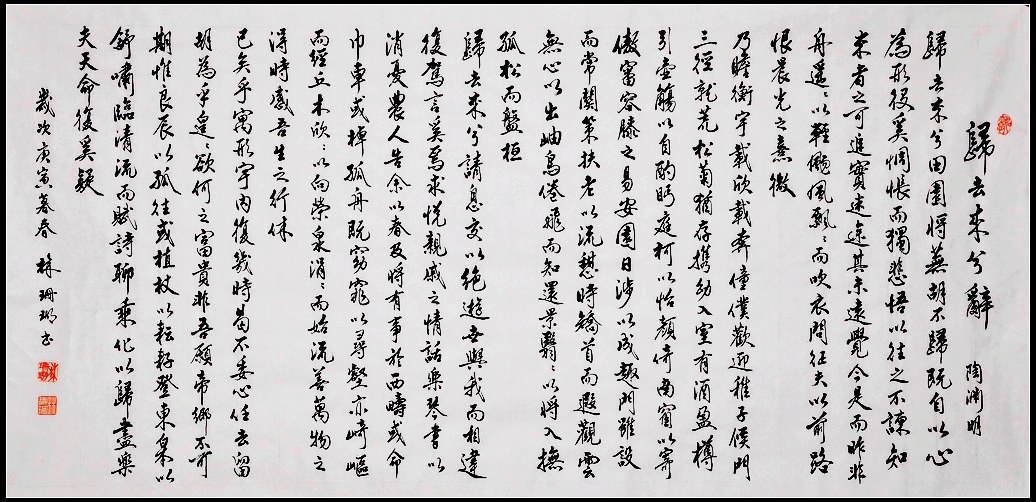 歸去來兮辭 陶渊明
歸去來兮田園將蕪胡不歸既自以心
為形役奚惆悵而獨悲悟以往之不諫知
來者之可追實迷途其未遠覺今是而昨非
舟遥〻以輕颺風飄〻而吹衣問征夫以前路
恨晨光之熹微
乃瞻衡宇載欣載奔僮僕歡迎稚子候門
三徑就荒松菊猶存攜幼入室有酒盈樽
引壺觴以自酌眄庭柯以怡顏倚南窗以寄
傲審容膝之易安園日涉以成趣門雖設
而常關策扶老以流憩時矯首而遐觀雲
無心以出岫鳥倦飛而知還景翳〻以將入撫
孤松而盤桓
歸去來兮請息交以絕遊世與我而相違
復駕言奚焉求悅親戚之情話樂琴書以
消憂農人告余以春及將有事於西疇或命
巾車或棹孤舟既窈窕以尋壑亦崎嶇
而經丘木欣〻以向榮泉涓〻而始流善萬物之
得時感吾生之行休
已矣乎寓形宇內復幾時曷不委心任去留
胡為乎遑〻欲何之富貴非吾願帝鄉不可
期惟良辰以孤往或植杖以耘耔登東皋以
舒嘯臨清流而賦詩聊乘化以歸盡樂
夫天命復奚疑
歲次庚寅暮春 林珊瑚书